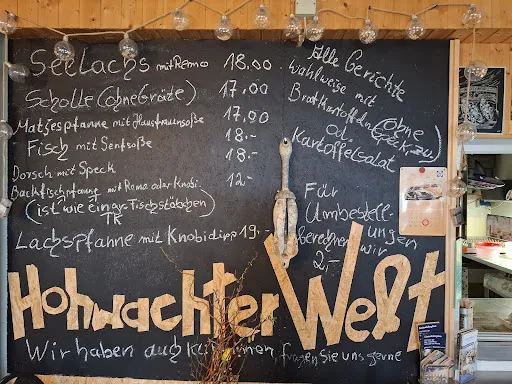 Seelachs mit Remo 18.00
Scholle (ohne Gräte) 17.00
Matjespfanne mit Hausfrauensoße 17.90
Fisch mit Senfsoße 18.-
Dorsch mit Speck 18.-
Backfischpfanne mit Remo oder Knobi. 12.-
(ist wie ein TK Fischstäbchen)
Lachspfanne mit Knobidipp 19.-
Alle Gerichte
wahlweise mit
Bratkartoffeln (ohne
od. Speck zu.)
Kartoffelsalat
Für
Umbestell-
ungen
berechnen wir
2,-
Hohwachter Welt
Wir haben auch fragen Sie uns gerne